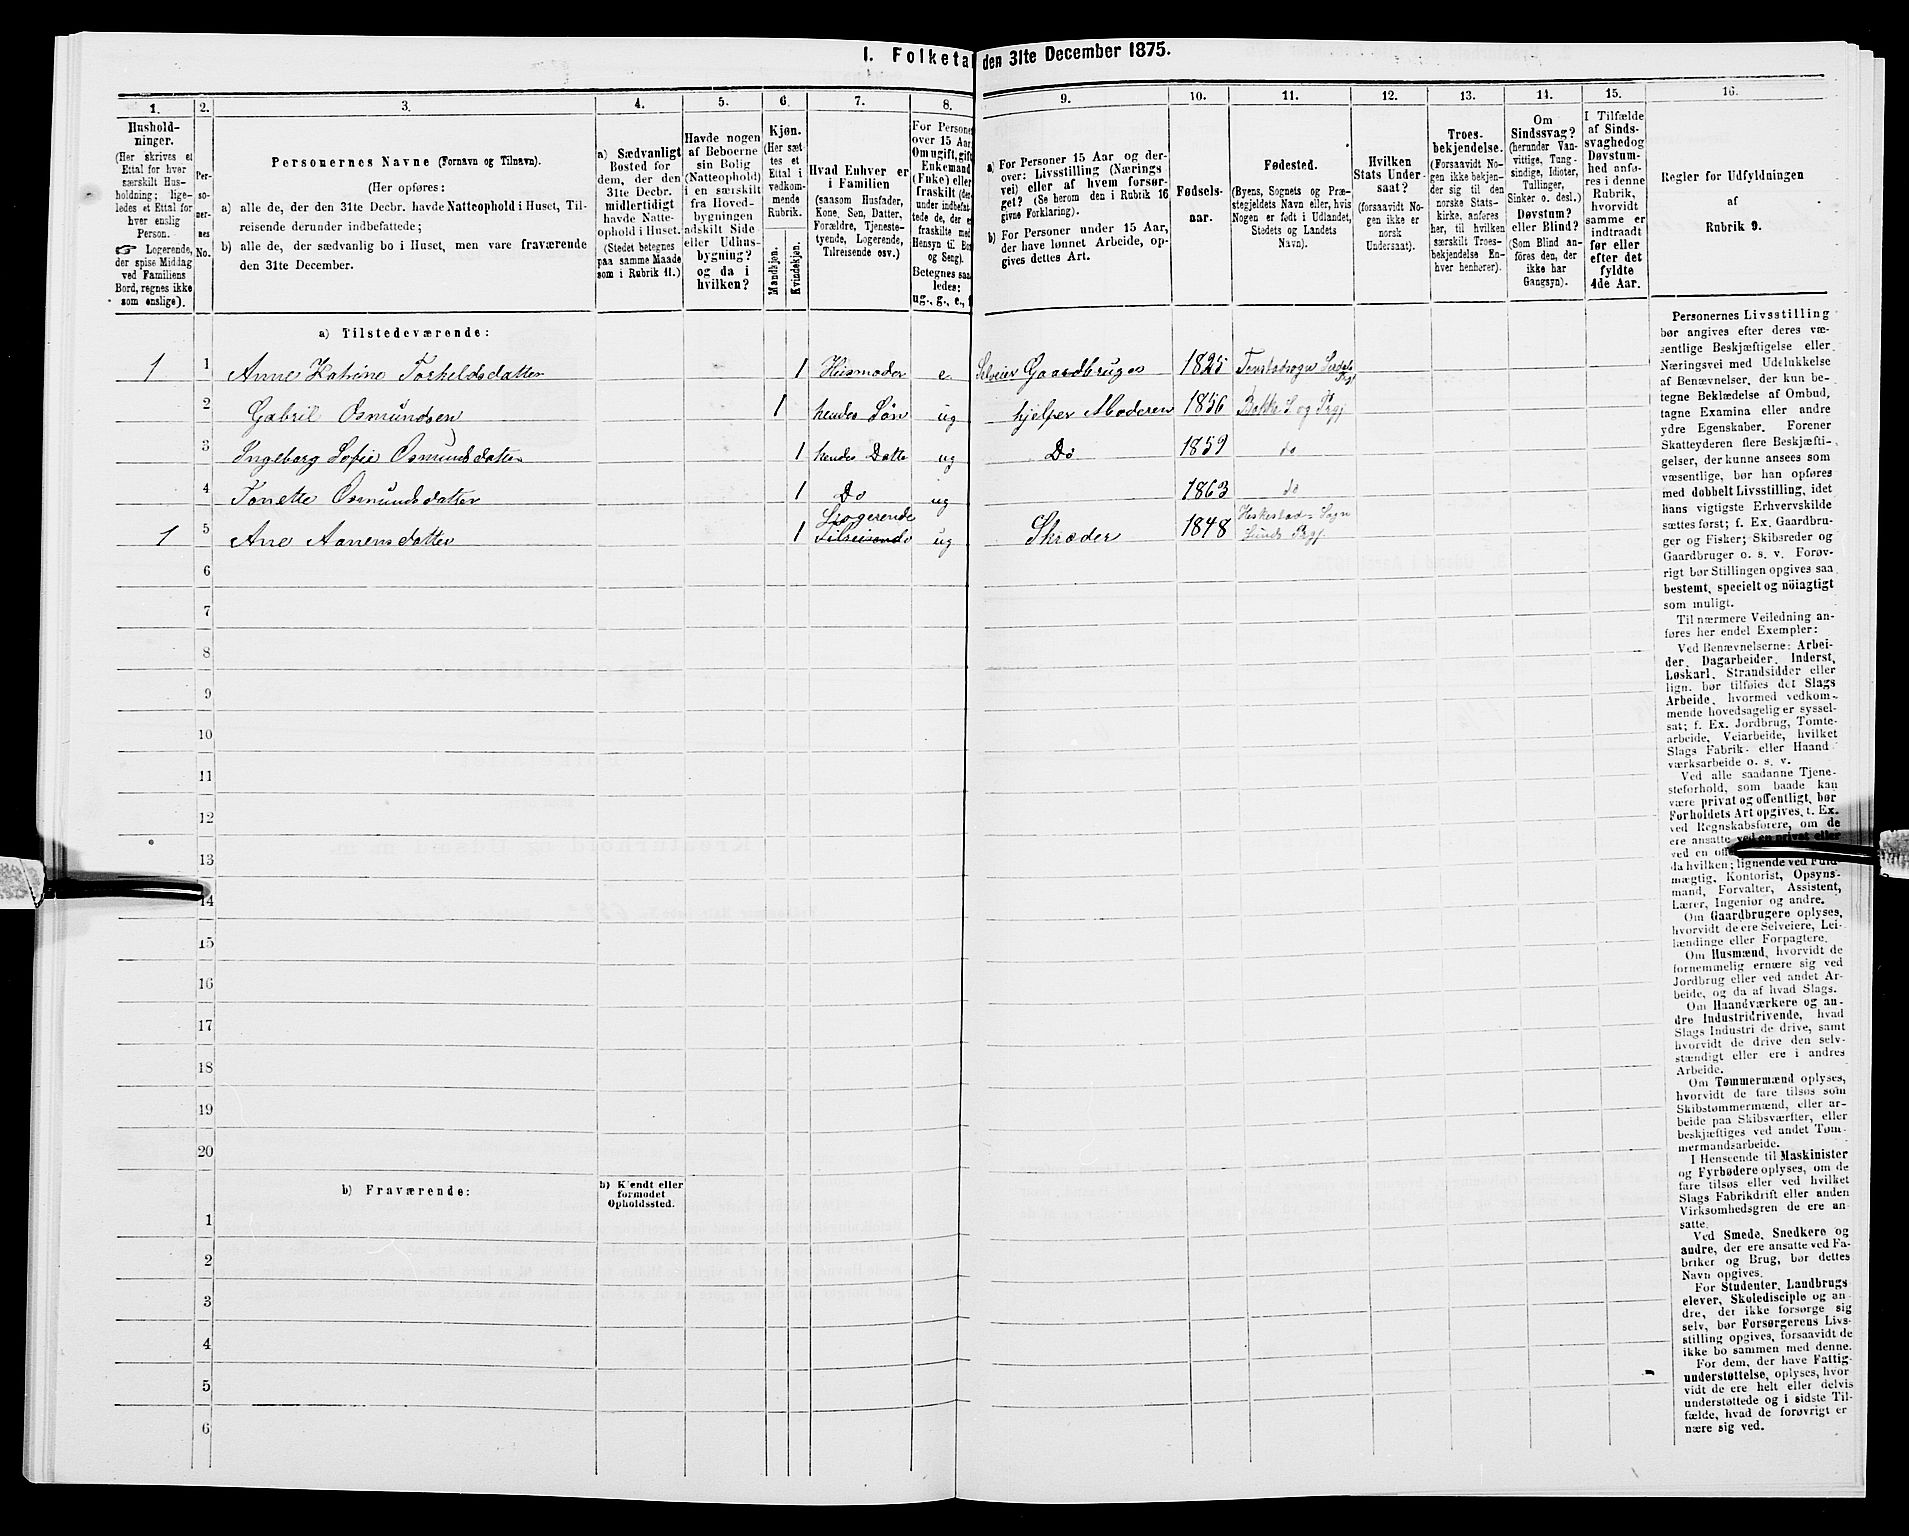 I. Folketal den 31te December 1875.
1. 2. 3. 4. 5. 6. 7. 8. 9. 10. 11. 12. 13. 14. 15. 16.
Hushold-
ninger.
(Her skrives et
Ettal for hver
særskilt Hus-
holdning; lige-
ledes et Ettal for
hver enslig
Person.
☞ Logerende,
der spise Middag
ved Familiens
Bord, regnes ikke
som enslige).
Per-
so-
ner-
nes
No.
Personernes Navne (Fornavn og Tilnavn).
(Her opføres:
a) alle de, der den 31te Decbr. havde Natteophold i Huset, Til-
reisende derunder indbefattede;
b) alle de, der sædvanlig bo i Huset, men vare fraværende
den 31te December.
a) Sædvanligt
Bosted for
dem, der den
31te Decbr.
midlertidigt
havde Natte-
ophold i Huset.
(Stedet betegnes
paa samme Maade
som i Rubrik 11.)
Havde nogen
af Beboerne
sin Bolig
(Natteophold)
i en særskilt
fra Hoved-
bygningen
adskilt Side
eller Udhus-
bygning?
og da i
hvilken?
Kjøn.
(Her sæt-
tes et
Ettal i
vedkom-
mende
Rubrik.
Mandkjøn.
Kvindekjøn.
Hvad Enhver er
i Familien
(saasom Husfader,
Kone, Søn, Datter,
Forældre, Tjeneste-
tyende, Logerende,
Tilreisende osv.)
For Personer
over 15 Aar
Om ugift, gift
Enkemand
(Enke) eller
fraskilt (der-
under indbefat-
tede de, der er
fraskilte med
Hensyn til Bor
og Seng).
Betegnes saa
ledes:
ug., g., e., f
a) For Personer 15 Aar og der-
over: Livsstilling (Nærings
vei) eller af hvem forsør-
get? (Se herom den i Rubrik 16
givne Forklaring).
b) For Personer under 15 Aar,
der have lønnet Arbeide, op-
gives dettes Art.
Fødsels-
aar.
Fødested.
(Byens, Sognets og Præ-
stegjeldets Navn eller, hvis
Nogen er født i Udlandet,
Stedets og Landets
Navn).
Hvilken
Stats Under-
saat?
(forsaavidt No-
gen ikke er
norsk
Undersaat).
Troes-
bekjendelse.
(Forsaavidt No-
gen ikke bekjen-
der sig til den
norske Stats-
kirke, anføres
her, til hvilken
særskilt Troes-
bekjendelse En-
hver henhører).
Om
Sindssvag?
(herunder Van-
vittige, Tung-
sindige, Idioter,
Tullinger,
Sinker o. desl.)
Døvstum?
eller Blind?
(Som Blind an-
føres den, der
ikke har
Gangsyn).
I Tilfælde
af Sinds-
svaghed og
Døvstum-
hed anfø-
res i denne
Rubrik,
hvorvidt
samme er
indtraadt
før eller
efter det
fyldte
4de Aar.
Regler for Udfyldningen
af
Rubrik 9.
a) Tilstedeværende:
1 1 Anne Katrine Torkeldsdatter 1 Husmoder e. Selveier Gaardbruger 1825
2 Gabriel Osmundsen 1 hendes Søn ug hjelper Moderen 1856 Bakke S og Prgj
3 Ingeborg Sofie Osmundsdatter 1 hendes Datte ug Do 1859 do
4 Tonette Osmundsdatter 1 Do ug 1863 do
1 5 Ane Aanensdatter 1 Logerende Tilreisende ug Skræder 1848 Heskestad Sogn Lunds Prgj.
6
7
8
9
10
11
12
13
14
15
16
17
18
19
20
b) Fraværende:
b) Kjendt eller
formodet
Opholdssted.
1
2
3
4
5
6
Personernes Livsstilling
bør angives efter deres væ-
sentlige Beskjæftigelse eller
Næringsvei med Udelukkelse
af Benævnelser, der kun be-
tegne Beklædelse af Ombud,
tagne Examina eller andre
ydre Egenskaber. Forener
Skatteyderen flere Beskjæfti-
gelser, der kunne ansees som
væsentlige, bør han opføres
med dobbelt Livsstilling, idet
hans vigtigste Erhvervskilde
sættes først; f. Ex. Gaardbru-
ger og Fisker; Skibsreder og
Gaardbruger o. s. v. Forøv-
rigt bør Stillingen opgives saa
bestemt, specielt og nöiagtigt
som muligt.
Til nærmere Veiledning an-
føres her endel Exempler:
Ved Benævnelserne: Arbei-
der, Dagarbeider, Inderst,
Løskarl, Strandsidder eller
lign. bør tilføies det Slags
Arbeide, hvormed vedkom-
mende hovedsagelig er syssel-
sat; f. Ex. Jordbrug, Tomte-
arbeide, Veiarbeide, hvilket
Slags Fabrik- eller Haand
værksarbeide o. s. v.
Ved alle saadanne Tjene-
steforhold, som baade kan
være privat og offentligt, bør
Forholdets Art opgives, t. Ex.
ved Regnskabsførere, om de
ere ansatte ved en privat eller
ved en
da hvilken; lignende ved Fuld-
mægtig, Kontorist, Opsyns-
mand, Forvalter, Assistent,
Lærer, Ingeniør og andre.
Om Gaardbrugere oplyses,
hvorvidt de ere Selveiere, Lei-
lændinge eller Forpagtere.
Om Husmænd, hvorvidt de
fornemmelig ernære sig ved
Jordbrug eller ved andet Ar-
beide, og da af hvad Slags.
Om Haandværkere og an-
dre Industridrivende, hvad
Slags Industri de drive, samt
hvorvidt de drive den selv-
stændigt eller ere i andres
Arbeide.
Om Tømmermænd oplyses,
hvorvidt de fare tilsøs som
Skibstømmermænd, eller ar-
beide paa Skibsværfter, eller
beskjæftiges ved andet Tøm-
mermandsarbeide.
I Henseende til Maskinister
og Fyrbødere oplyses, om de
fare tilsøs eller ved hvilket
Slags Fabrikdrift eller anden
Virksomhedsgren de ere an-
satte.
Ved Smede, Snedkere og
andre, der ere ansatte ved Fa-
briker og Brug, bør dettes
Navn opgives.
For Studenter, Landbrugs
elever, Skoledisciple og an-
dre, der ikke forsørge sig
selv, bør Forsørgerens Livs-
stilling opgives, forsaavidt de
ikke bo sammen med denne.
For dem, der have Fattig-
understøttelse, oplyses, hvor-
vidt de ere helt eller delvis
understøttede og i sidste Til-
fælde, hvad de forøvrigt er
nære sig ved.